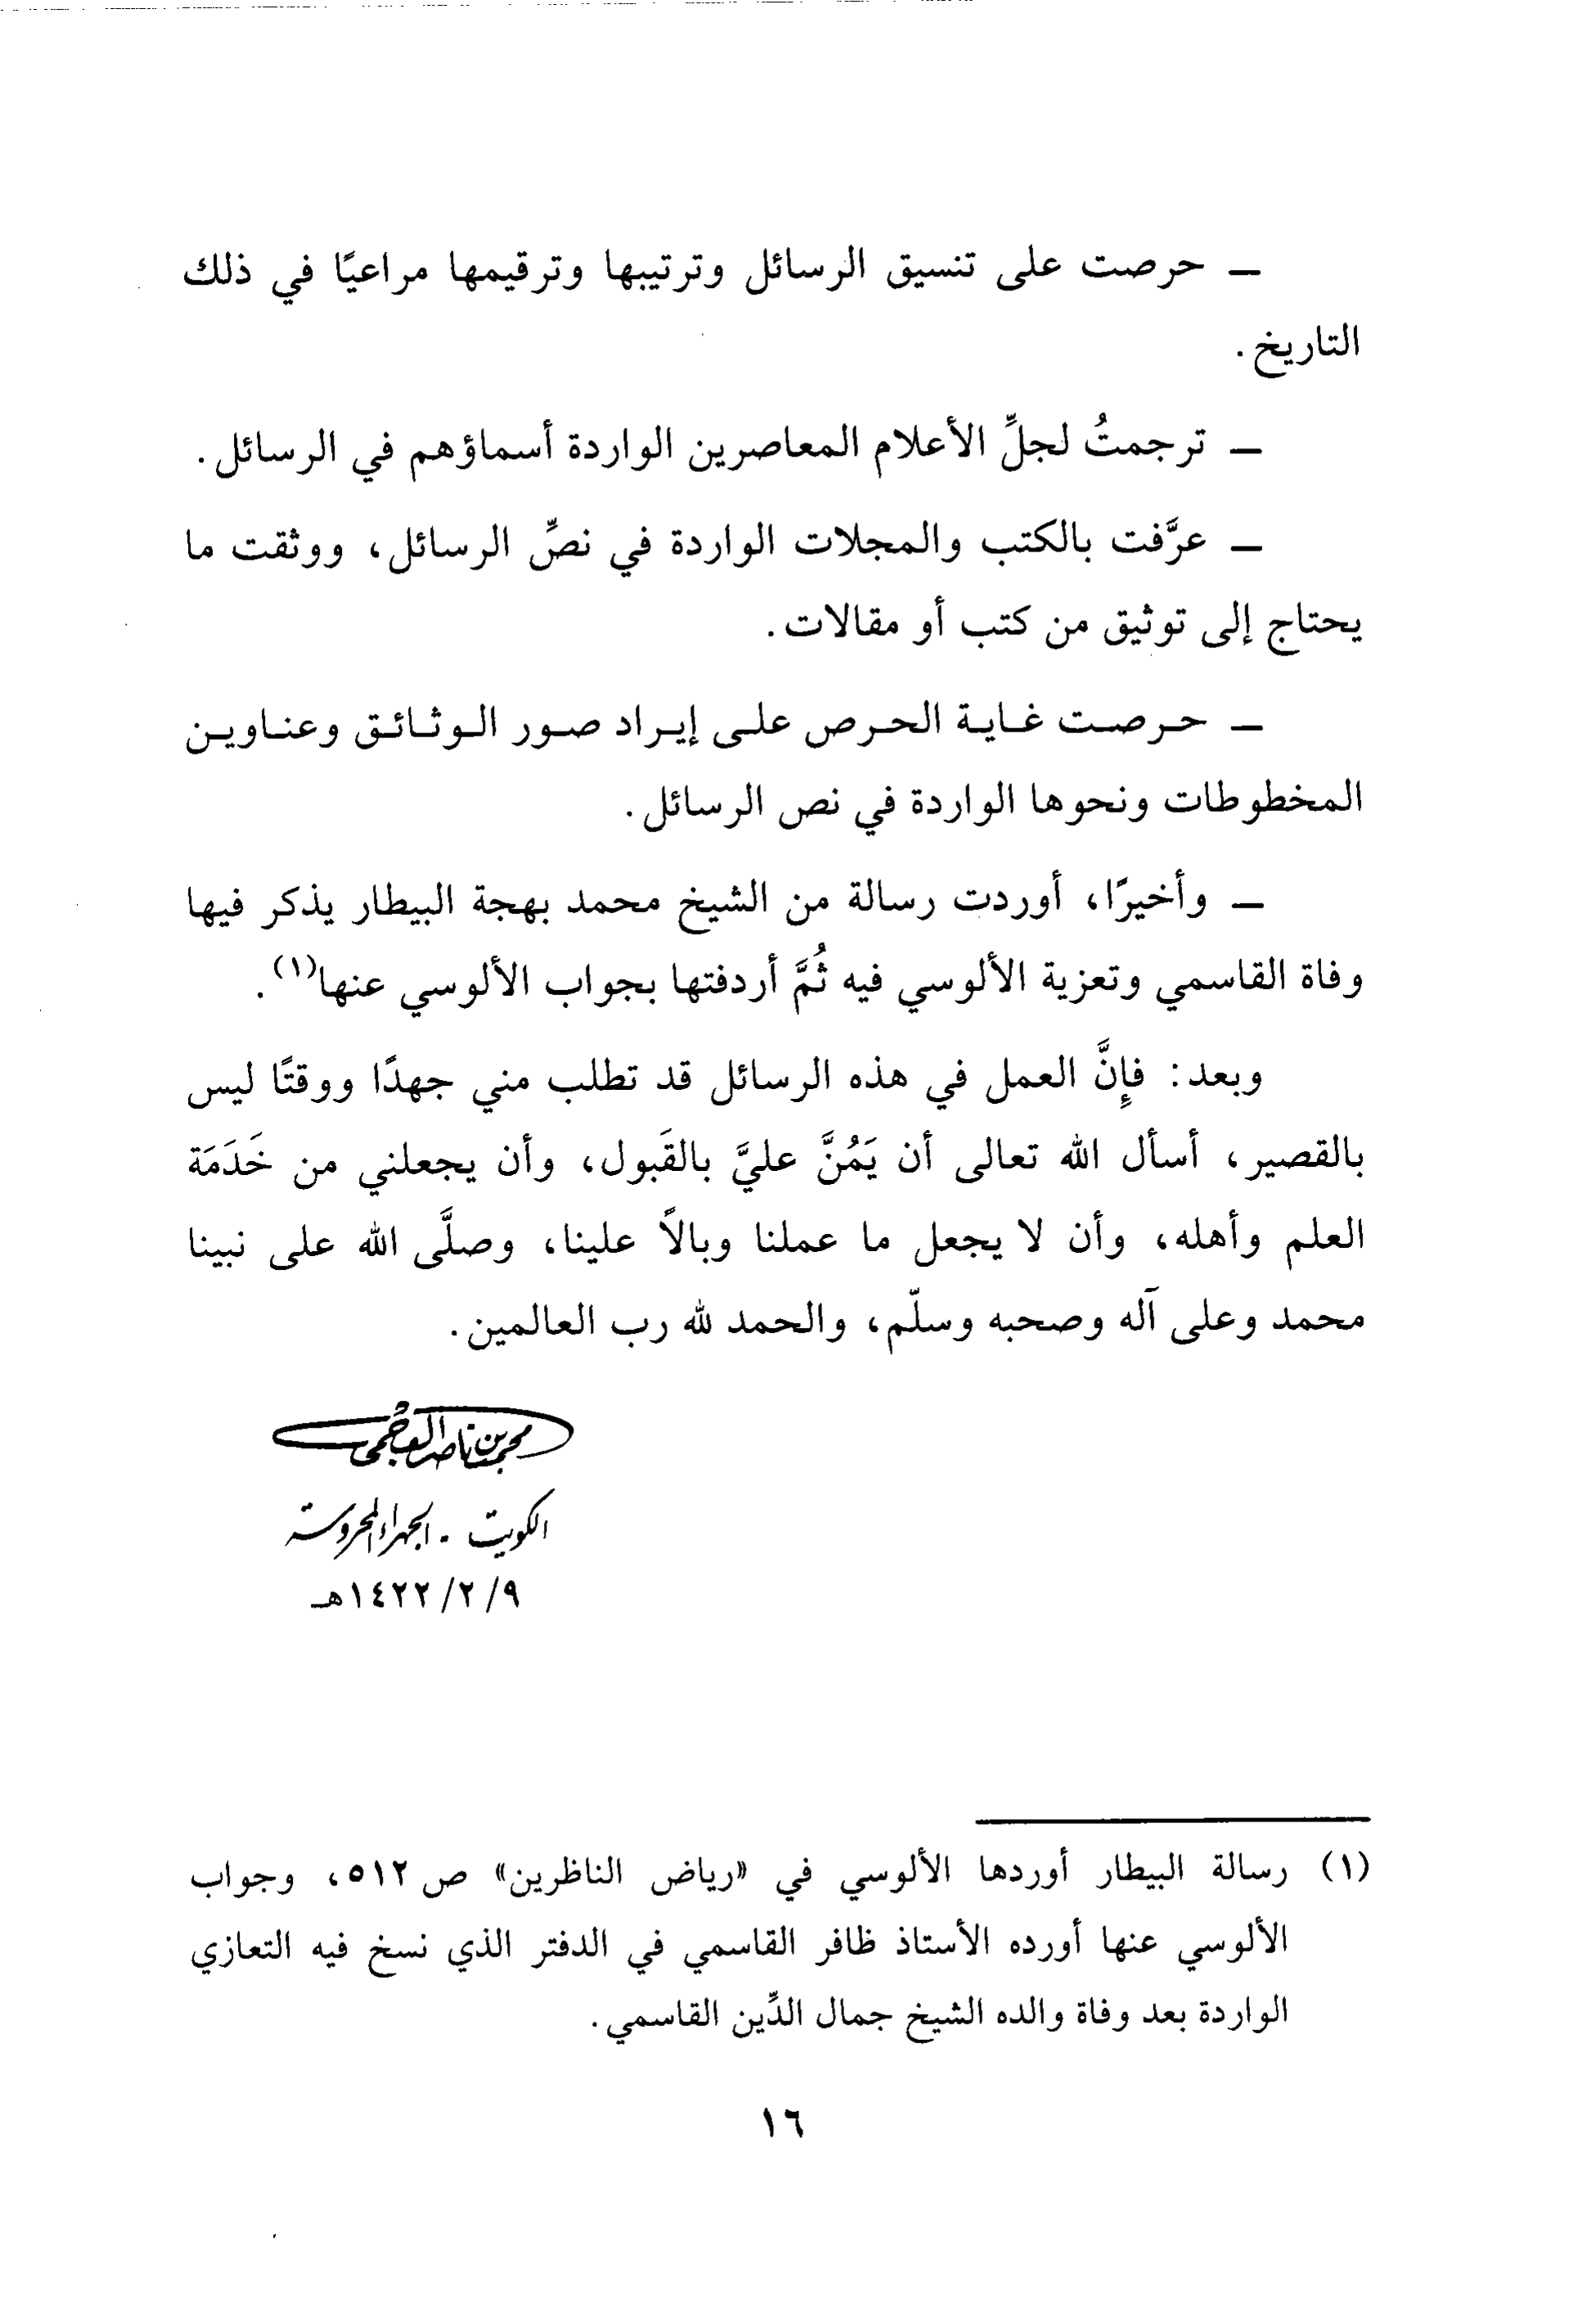 ـ حرصت على تنسيق الرسائل وترتيبها وترقيمها مراعيًا في ذلك
التاريخ.
ـ ترجمتُ لجلِّ الأعلام المعاصرين الواردة أسماؤهم في الرسائل.
ـ عرَّفت بالكتب والمجلات الواردة في نصِّ الرسائل، ووثقت ما
يحتاج إلى توثيق من كتب أو مقالات.
ـ حرصت غاية الحرص على إيراد صور الوثائق وعناوين
المخطوطات ونحوها الواردة في نص الرسائل.
ـ وأخيرًا، أوردت رسالة من الشيخ محمد بهجة البيطار يذكر فيها
وفاة القاسمي وتعزية الألوسي فيه ثُمَّ أردفتها بجواب الألوسي عنها(١).
وبعد: فإِنَّ العمل في هذه الرسائل قد تطلب مني جهدًا ووقتًا ليس
بالقصير، أسأل الله تعالى أن يَمُنَّ عليَّ بالقَبول، وأن يجعلني من خَدَمَة
العلم وأهله، وأن لا يجعل ما عملنا وبالاً علينا، وصلَّى الله على نبينا
محمد وعلى آله وصحبه وسلّم، والحمد لله رب العالمين.
محمد بن ناصر العجمي
الكويت - الجهراء المحروسة
٩/ ٢/ ١٤٢٢هـ
(١) رسالة البيطار أوردها الألوسي في «رياض الناظرين» ص ٥١٢، وجواب
الألوسي عنها أورده الأستاذ ظافر القاسمي في الدفتر الذي نسخ فيه التعازي
الواردة بعد وفاة والده الشيخ جمال الدِّين القاسمي.
١٦